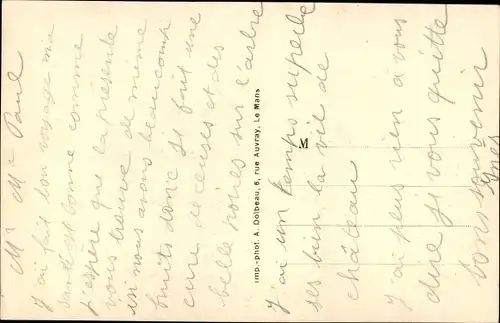 Mr Me Paul
J'ai fait bon voyage ma
santé est bonne comme
j'espère que la présente
vous trouve de même
isi nous avons beaucoup
fruits donc je fait une
cure de cerises et des
belle poires sur l'arbre
Imp.-phot. A. Dolbeau, 6, rue Auvray, Le Mans
M
J'ai un temps superbe
ses bien la vie de
château
J'ai plus rien à vous
dire je vous quitte
bons souvenir
Yves